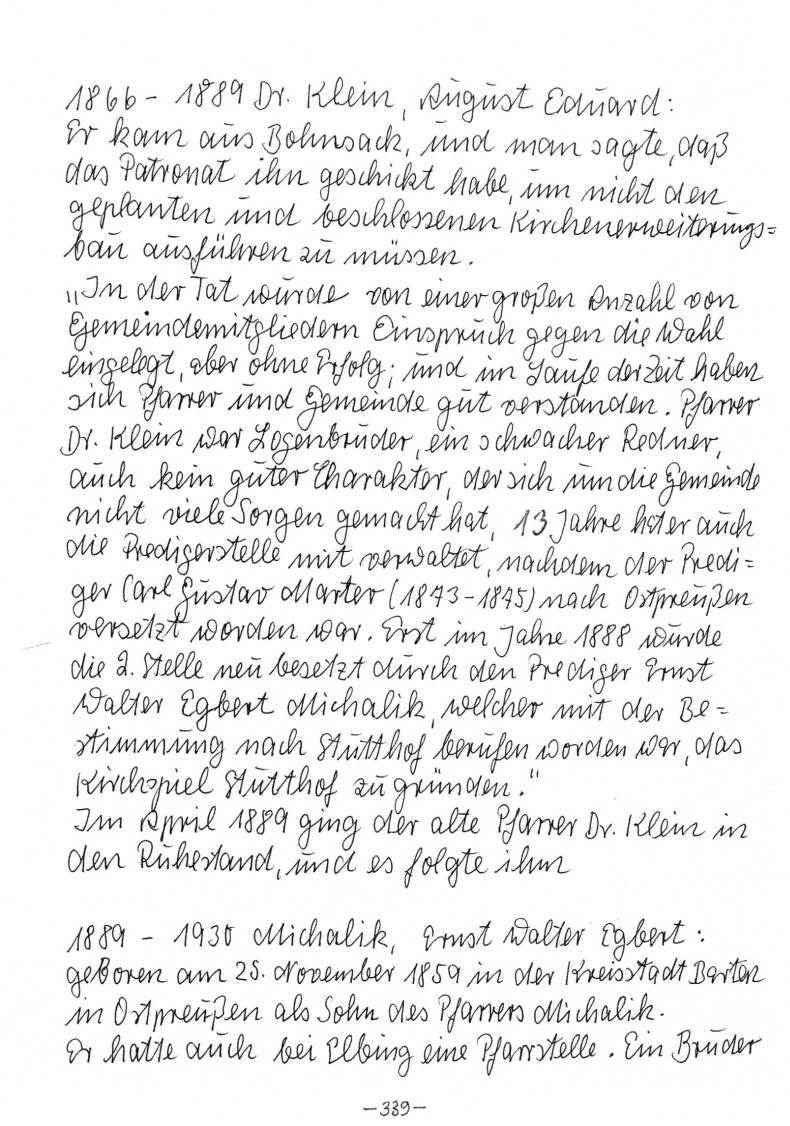 1866 - 1889 Dr. Klein, August Eduard:
Er kam aus Bohnsack, und man sagte, daß
das Patronat ihn geschickt habe, um nicht den
geplanten und beschlossenen Kirchenerweiterungs=
bau ausführen zu müssen.
„In der Tat wurde von einer großen Anzahl von
Gemeindemitgliedern Einspruch gegen die Wahl
eingelegt, aber ohne Erfolg; und im Laufe der Zeit haben
sich Pfarrer und Gemeinde gut verstanden. Pfarrer
Dr. Klein war Logenbruder, ein schwacher Redner,
auch kein guter Charakter, der sich um die Gemeinde
nicht viele Sorgen gemacht hat, 13 Jahre hat er auch
die Predigerstelle mit verwaltet, nachdem der Predi=
ger Carl Gustav Marter (1873-1875) nach Ostpreußen
versetzt worden war. Erst im Jahre 1888 wurde
die 2. Stelle neu besetzt durch den Prediger Ernst
Walter Egbert Michalik, welcher mit der Be=
stimmung nach Stutthof berufen worden war, das
Kirchspiel Stutthof zu gründen."
Im April 1889 ging der alte Pfarrer Dr. Klein in
den Ruhestand, und es folgte ihm
1889 - 1930 Michalik, Ernst Walter Egbert:
geboren am 25. November 1859 in der Kreisstadt Barten
in Ostpreußen als Sohn des Pfarrers Michalik.
Er hatte auch bei Elbing eine Pfarrstelle. Ein Bruder
-339-